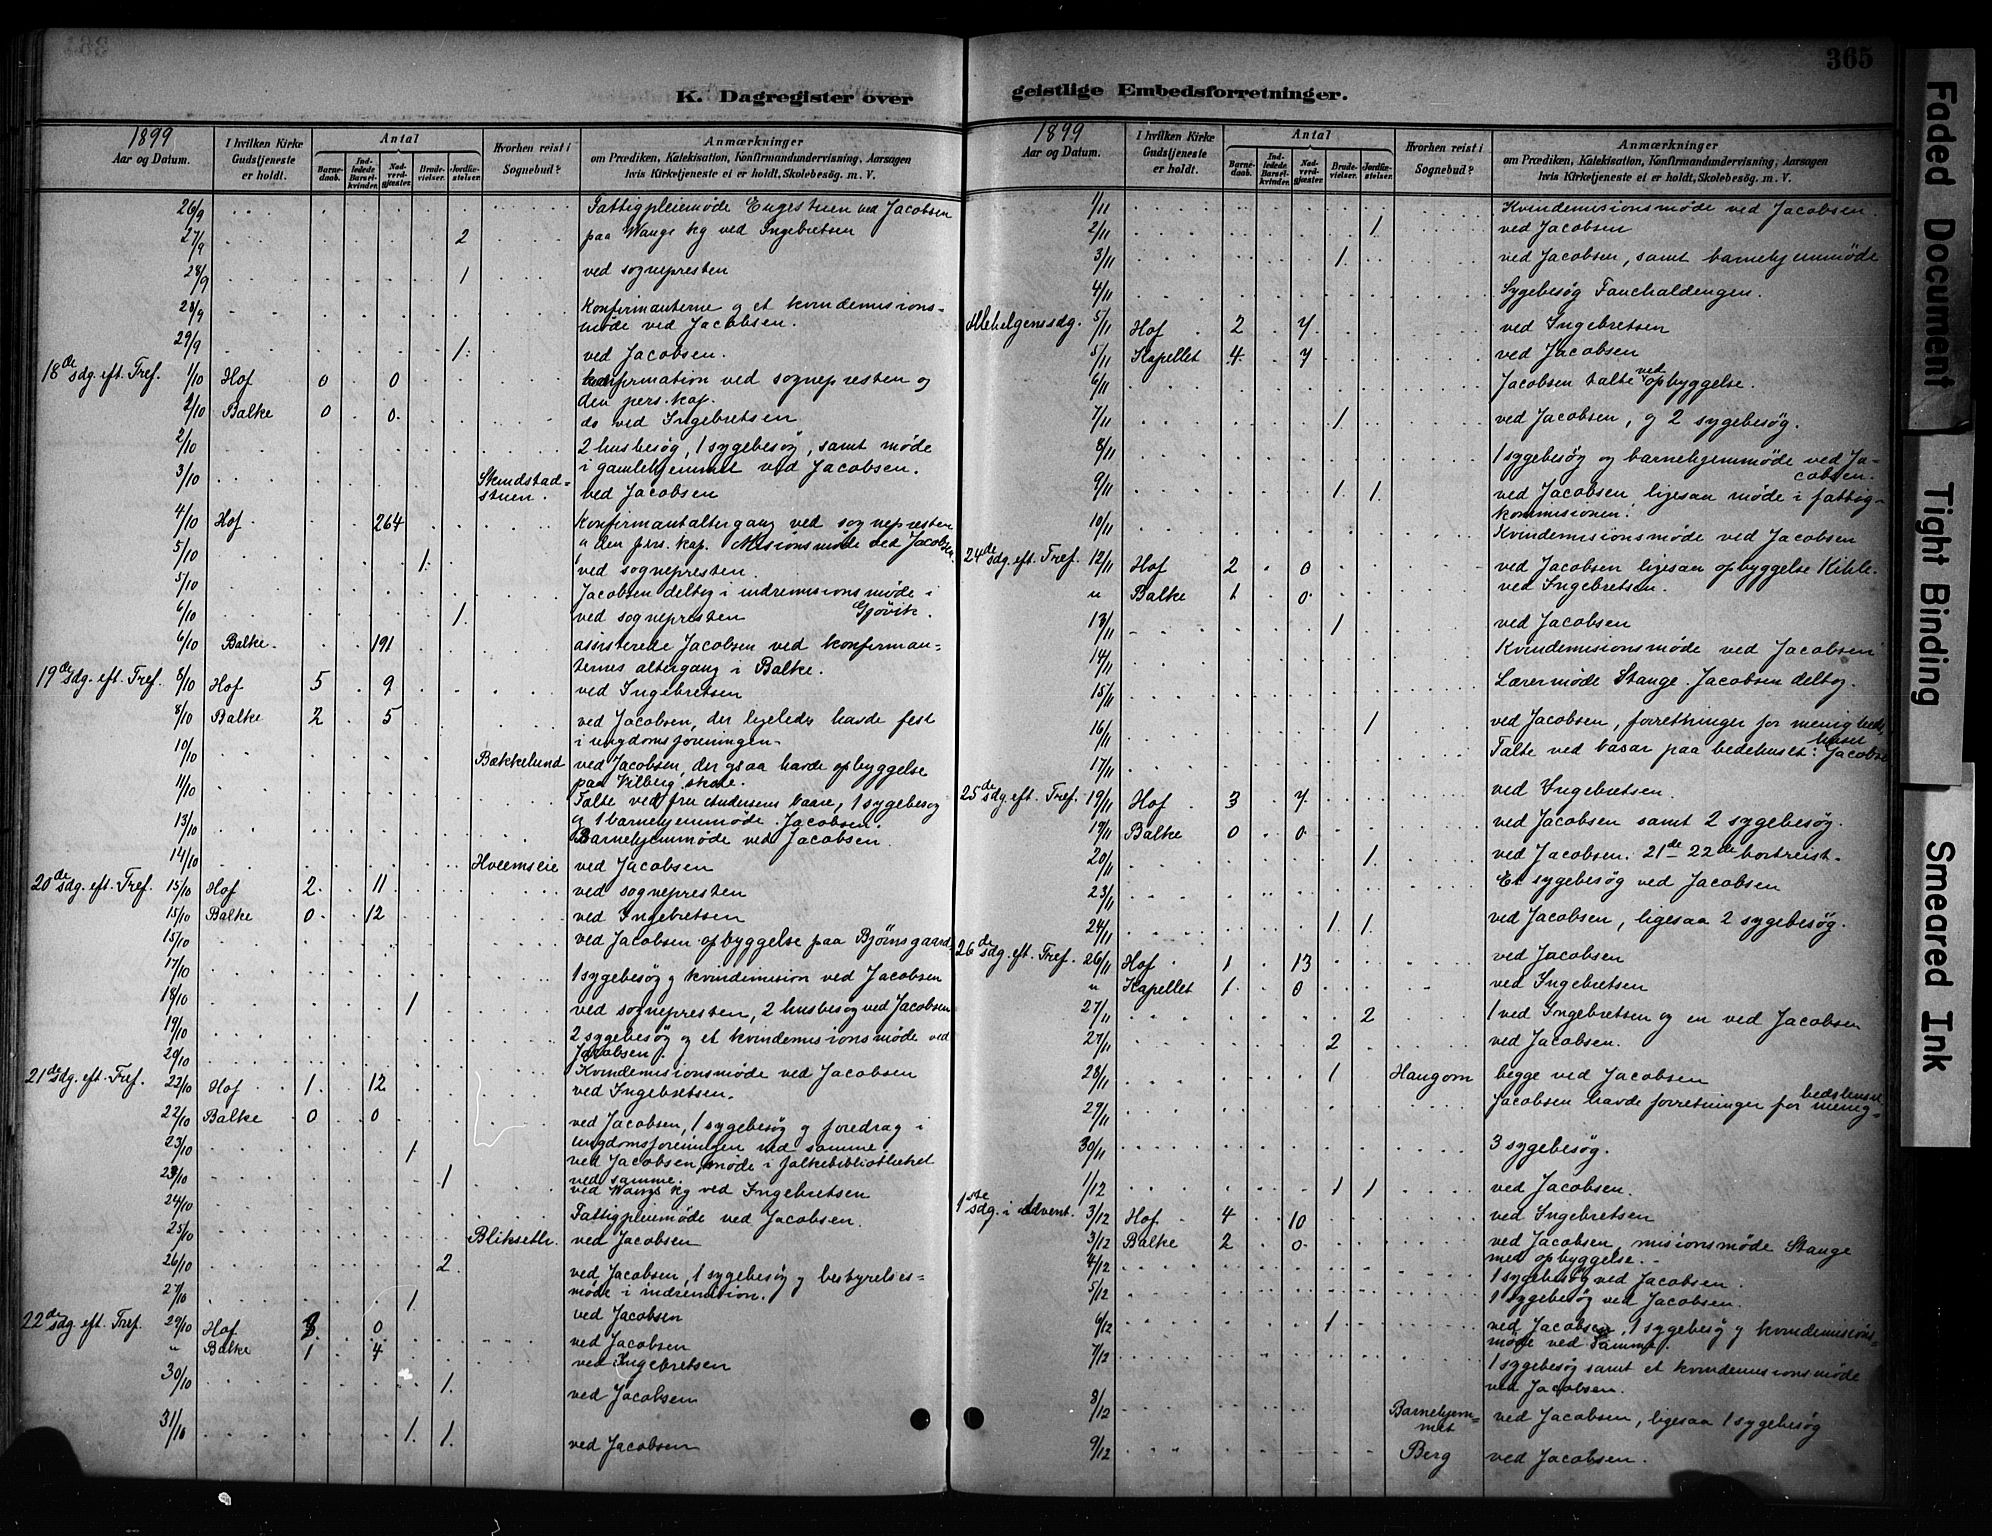 365
K. Dagregister over
1899
Aar og Datum.
I hvilken Kirke Gudstjeneste er holdt.
Antal
Barnedaab.
Indledede Barselkvinder.
Nadverdgjæster.
Brudevielser.
Jordfæstelser.
Hvorhen reist i Sognebud?
Anmærkninger
om Prædiken, Katekisation, Konfirmandundervisning, Aarsagen
hvis Kirketjeneste ei er holdt, Skolebesög. m. V.
26/9 Fattigpleiemøde Engestuen ved Jacobsen
27/9 2 paa Wangs kg ved Ingebretsen
28/9 1 ved sognepresten
28/9 Konfirmanterne og et kvindemisions-
møde ved Jacobsen.
29/9 1. ved Jacobsen.
18de sdg. eft. Tref. 1/10 Hof 0 0 konfirmation ved sognepresten og
den pers. kap.
2/10 Balke 0 0. do ved Ingebretsen
2/10 2 husbesøg, 1 sygebesøg, samt møde
i gamlehjemmet ved Jacobsen.
3/10 Skundstad-
stuen. ved Jacobsen
4/10 Hof 264 Konfirmantaltergang ved sognepresten
" den pers. kap. Misionsmøde ved Jacobsen.
5/10 1. ved sognepresten.
5/10 Jacobsen deltog i indremisionsmøde i
Gjøvik.
6/10 1. ved sognepresten
6/10 Balke. 191 assisterede Jacobsen ved konfirman-
ternes altergang i Balke.
19de sdg. eft. Tref. 8/10 Hof 5 9 ved Ingebretsen
8/10 Balke 2 5 ved Jacobsen, der ligeledes havde fest
i ungdomsforeningen.
10/10 Bækkelund ved Jacobsen, der ogsaa havde opbyggelse
paa Vilberg skole.
11/10 Talte ved fru Andersens basar, 1 sygebesøg
og 1 barnehjemmøde. Jacobsen.
13/10 Barnehjemmøde ved Jacobsen.
14/10 Hveemseie ved Jacobsen
20de sdg. eft. Tref. 15/10 Hof 2. 11 ved sognepresten
15/10 Balke 0 12 ved Ingebretsen
15/10 ved Jacobsen opbyggelse paa Bjørnsgaard
17/10 1 sygebesøg og kvindemision ved Jacobsen
18/10 1 ved sognepresten, 2 husbesøg ved Jacobsen
19/10 2 sygebesøg og et kvindemisionsmøde ved
Jacobsen.
20/10 Kvindemisionsmøde ved Jacobsen
21de sdg. eft. Tref. 22/10 Hof 1. 12 ved Ingebretsen.
22/10 Balke 0 0 ved Jacobsen, 1 sygebesøg og foredrag i
ungdomsforeningen ved samme.
23/10 1. ved Jacobsen, møde i folkebibliotheket
ved samme.
23/10 1 ved Wangs kg ved Ingebretsen
24/10 Fattigpleiemøde ved Jacobsen.
25/10 Bliksetlr. ved Jacobsen
26/10 2. ved Jacobsen, 1 sygebesøg og bestyrelses-
møde i indremision.
27/10 1. ved Jacobsen
22de sdg. eft. Tref. 29/10 Hof 3. 0 ved Jacobsen
" Balke 1 4 ved Ingebretsen
30/10 1. ved Jacobsen
31/10 1. 1. ved Jacobsen
geistlige Embedsforretninger.
1899
Aar og Datum.
I hvilken Kirke Gudstjeneste er holdt.
Antal
Barnedaab.
Indledede Barselkvinder.
Nadverdgjæster.
Brudevielser.
Jordfæstelser.
Hvorhen reist i Sognebud?
Anmærkninger
om Prædiken, Katekisation, Konfirmandundervisning, Aarsagen
hvis Kirketjeneste ei er holdt, Skolebesög. m. V.
1/11 Kvindemisionsmøde ved Jacobsen
2/11 1. ved Jacobsen
3/11 1. ved Jacobsen, samt barnehjemmøde
4/11 Sygebesøg Fauchaldengen.
Allehelgenssdg. 5/11 Hof 2 7. ved Ingebretsen
5/11 Kapellet 4. 7 ved Jacobsen
6/11 Jacobsen talte ved opbyggelse.
7/11 1. ved Jacobsen, og 2 sygebesøg.
8/11 1 sygebesøg og barnehjemmøde ved Ja-
cobsen.
9/11 1. 1. ved Jacobsen ligesaa møde i fattig-
kommisionen.
10/11 Kvindemisionsmøde ved Jacobsen
24de sdg. eft. Tref. 12/11 Hof 2 0 ved Jacobsen ligesaa opbyggelse Kihle.
" Balke 1 0. ved Ingebretsen.
13/11 1 ved Jacobsen
14/11 Kvindemisionsmøde ved Jacobsen
15/11 Lærermøde Stange. Jacobsen deltog.
16/11 1 ved Jacobsen, forretninger for menighedshuset
17/11 Talte ved basar paa bedehuset: Jacobsen
25de sdg. eft. Tref. 19/11 Hof 3 7. ved Ingebretsen.
19/11 Balke 0 0. ved Jacobsen samt 2 sygebesøg.
20/11 1. ved Jacobsen. 21de – 22de bortreist.
23/11 Et sygebesøg ved Jacobsen
24/11 1. 1. ved Jacobsen, ligesaa 2 sygebesøg.
26de sdg. eft. Tref. 26/11 Hof 1 13 ved Jacobsen
" Kapellet 1. 0 ved Ingebretsen
27/11 2 1 ved Ingebretsen og en ved Jacobsen
27/11 2 ved Jacobsen.
28/11 1 Haugom begge ved Jacobsen
29/11 Jacobsen havde forretninger for menig-
hedshuset
30/11 3 sygebesøg.
1/12 1 1 ved Jacobsen.
1ste sdg. i Advent. 3/12 Hof 4 10 ved Ingebretsen
3/12 Balke 2 0. ved Jacobsen, misionsmøde Stange
med opbyggelse.
4/12 1 sygebesøg ved Jacobsen.
5/12 1 sygebesøg ved Jacobsen.
6/12 1 ved Jacobsen, 1 sygebesøg og kvindemisions-
møde ved samme.
7/12 1 sygebesøg samt et kvindemisionsmøde
ved Jacobsen.
8/12 Barnehjem-
met ved Jacobsen, ligesaa 1 sygebesøg
9/12 Berg ved Jacobsen.
Faded Document
Tight Binding
Smeared Ink